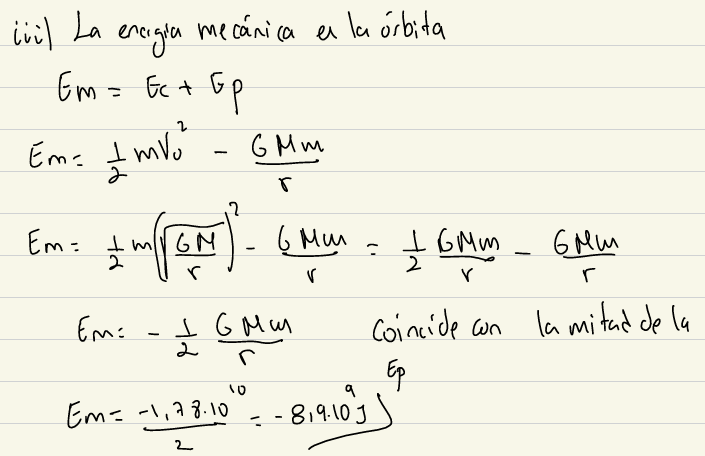 iii) La energía mecánica en la órbita
Em = Ec + Ep
Em = 1/2 mVo² - GMm/r
Em = 1/2 m(√(GM/r))² - GMm/r = 1/2 GMm/r - GMm/r
Em = - 1/2 GMm/r Coincide con la mitad de la Ep
Em = -1,78·10¹⁰/2 = -8,9·10⁹ J